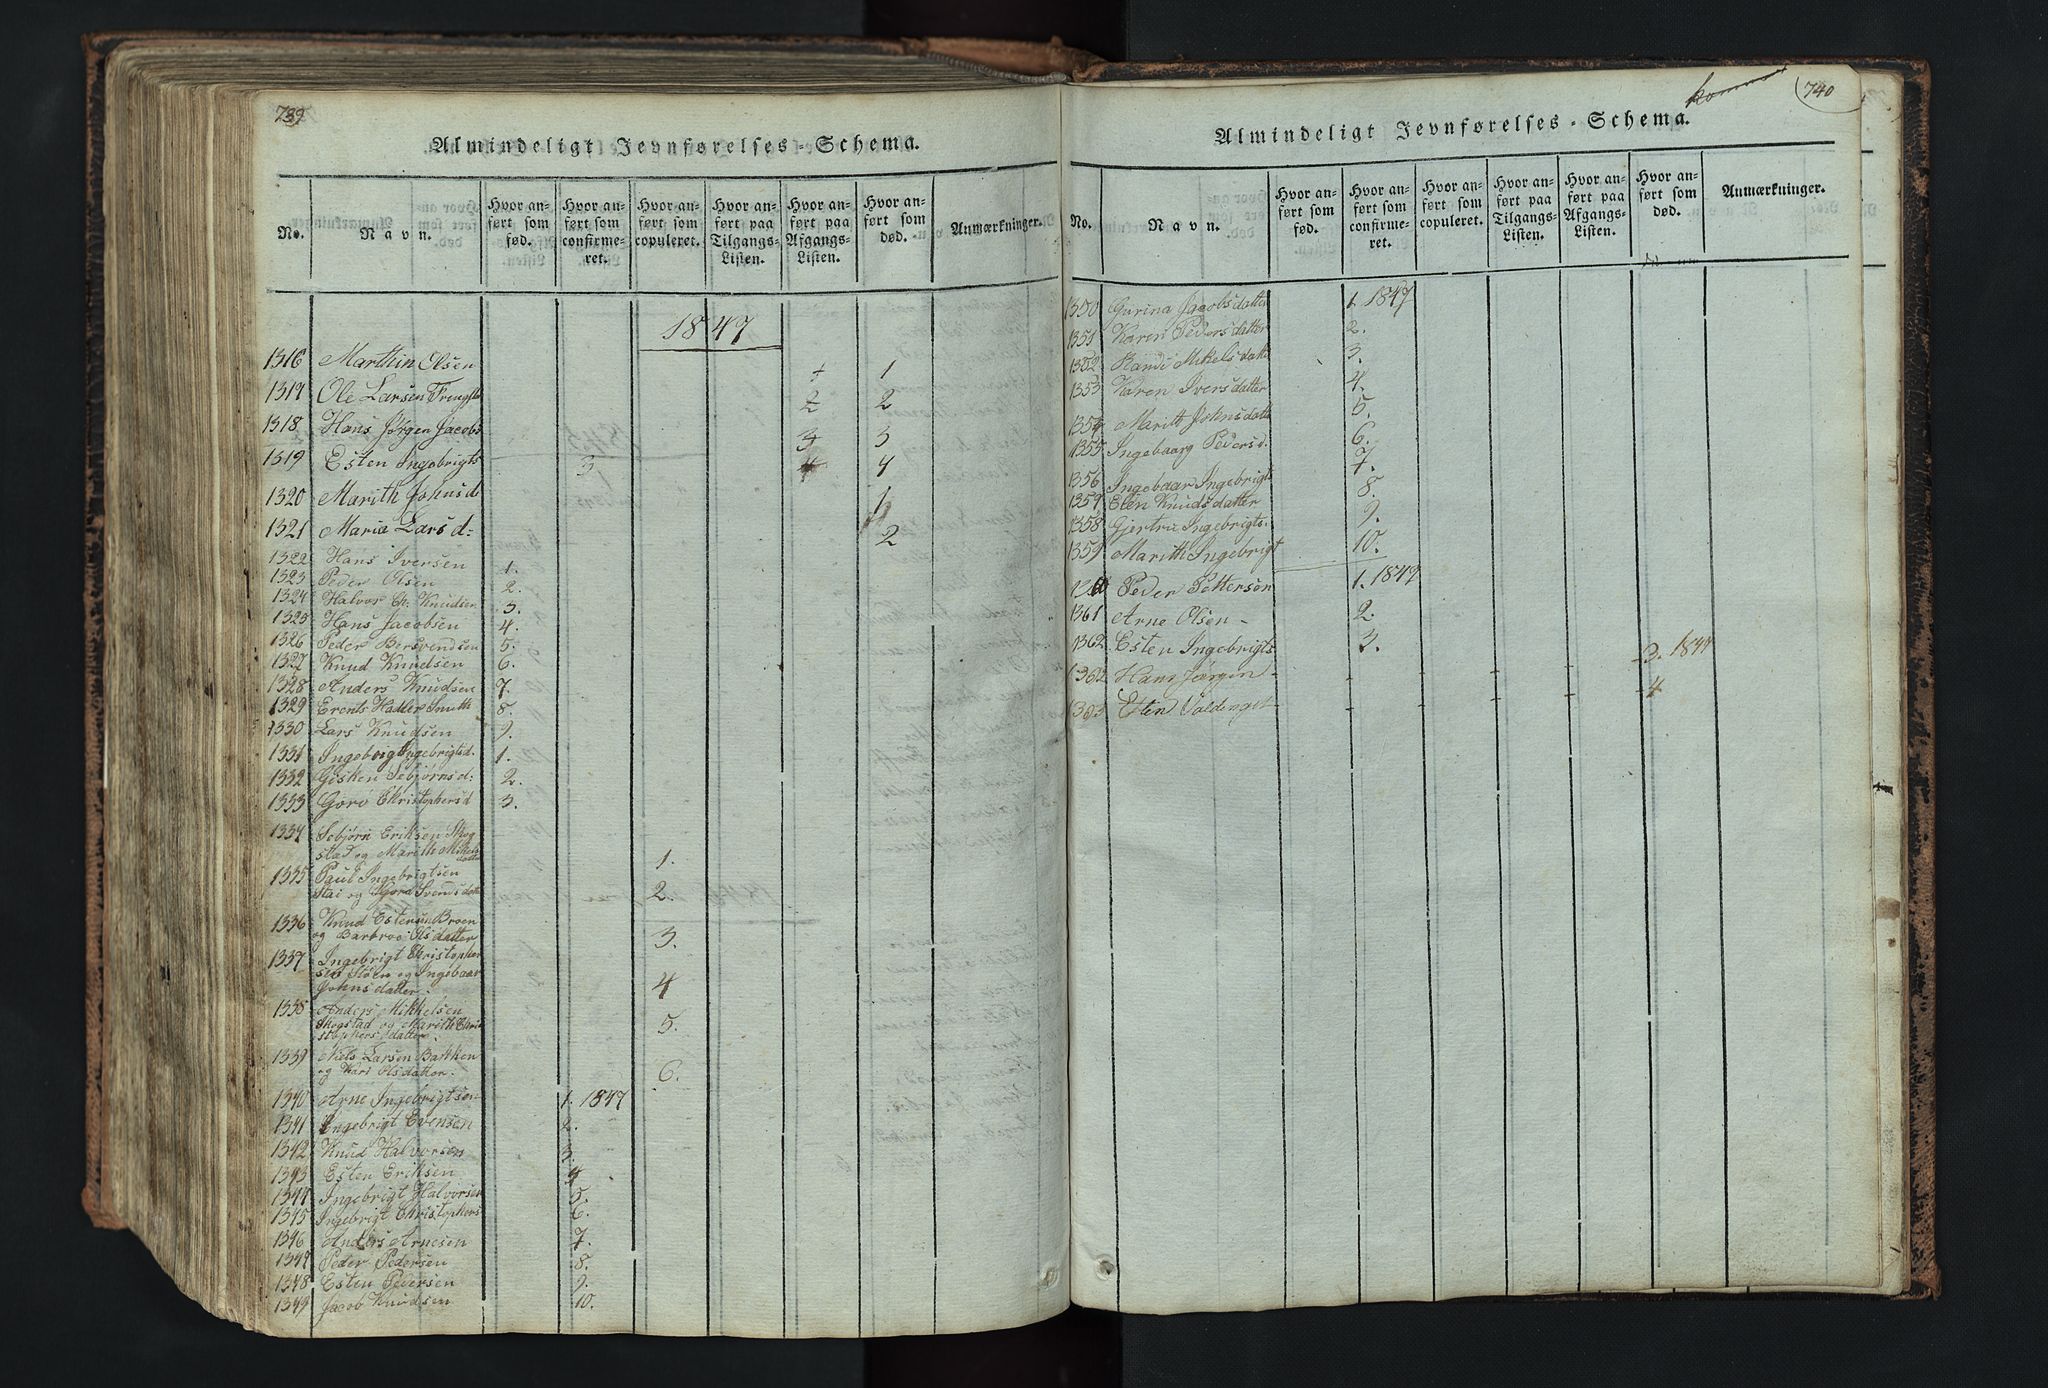 739
Almindeligt Jevnførelses-Schema.
No. Navn. Hvor anført som fød. Hvor anført som confirmeret. Hvor anført som copuleret. Hvor anført paa Tilgangs-Listen. Hvor anført paa Afgangs-Listen. Hvor anført som død. Anmærkninger.
1847
1316 Marthin Olsen 1
1317 Ole Larsen 2 2
1318 Hans Jørgen Jacobs 3 3
1319 Esten Ingebrigts 3 4 4
1320 Marith Johnsd 1
1321 Maria Lars d: 2
1322 Hans Iversen 1.
1323 Peder Olsen 2.
1324 Halvor Ch: Knudsen 3.
1325 Hans Jacobsen 4.
1326 Peder Bersvendsen 5.
1327 Knud Knudsen 6.
1328 Anders Knudsen 7.
1329 8.
1330 Lars Knudsen 9.
1331 Ingeborg Ingebrigtsd. 1.
1332 Gisken Sebjørnsd: 2.
1333 Goro Christophersd 3.
1334 Sebjørn Eriksen Skog
stad og Marith Mikels
datter 1.
1335 Paul Ingebrigtsen
Stai og Svendsdatt 2.
1336 Knud Estensen Broen
og Barbroe Olsdatter 3.
1337 Ingebrigt Christopher
sen Støen og Ingebaar
Johnsdatter 4
1338 Anders Mikkelsen
Skogstad og Marith Chri
stophersdatter. 5.
1339 Niels Larsen Bakken
og Kari Olsdatter. 6.
1340 Arne Ingebrigtsen 1. 1847
1341 Ingebrigt Evensen 2.
1342 Knud Halvorsen 3.
1343 Esten Eriksen 4
1344 Ingebrigt Halvorsen 5.
1345 Ingebrigt Christophers 6.
1346 Anders Arnesen 7.
1347 Peder Pedersen 8.
1348 Esten Pedersen 9.
1349 Jacob Knudsen 10.
740
Almindeligt Jevnførelses-Schema.
No. Navn. Hvor anført som fød. Hvor anført som confirmeret. Hvor anført som copuleret. Hvor anført paa Tilgangs-Listen. Hvor anført paa Afgangs-Listen. Hvor anført som død. Anmærkninger.
1350 Gurina Jacobsdatter 1. 1847
1351 Karen Pedersdatter 2.
1352 Randi Mikelsdatt 3.
1353 Karen Iversdatter 4.
1354 Marith Johnsdatt 5.
1355 Ingebaarg Pedersd. 6.
1356 Ingebaar Ingebrigts 7.
1357 Eten Knudsdatter 8.
1358 Gjertru Ingebrigts. 9.
1359 Marith Ingebrigt 10.
Peder Pettersen 1. 1847
1361 Arne Olsen - 2.
1362 Esten Ingebrigts 3.
Hans Jørgen - - - - - 3. 1847
Esten - - - - 4